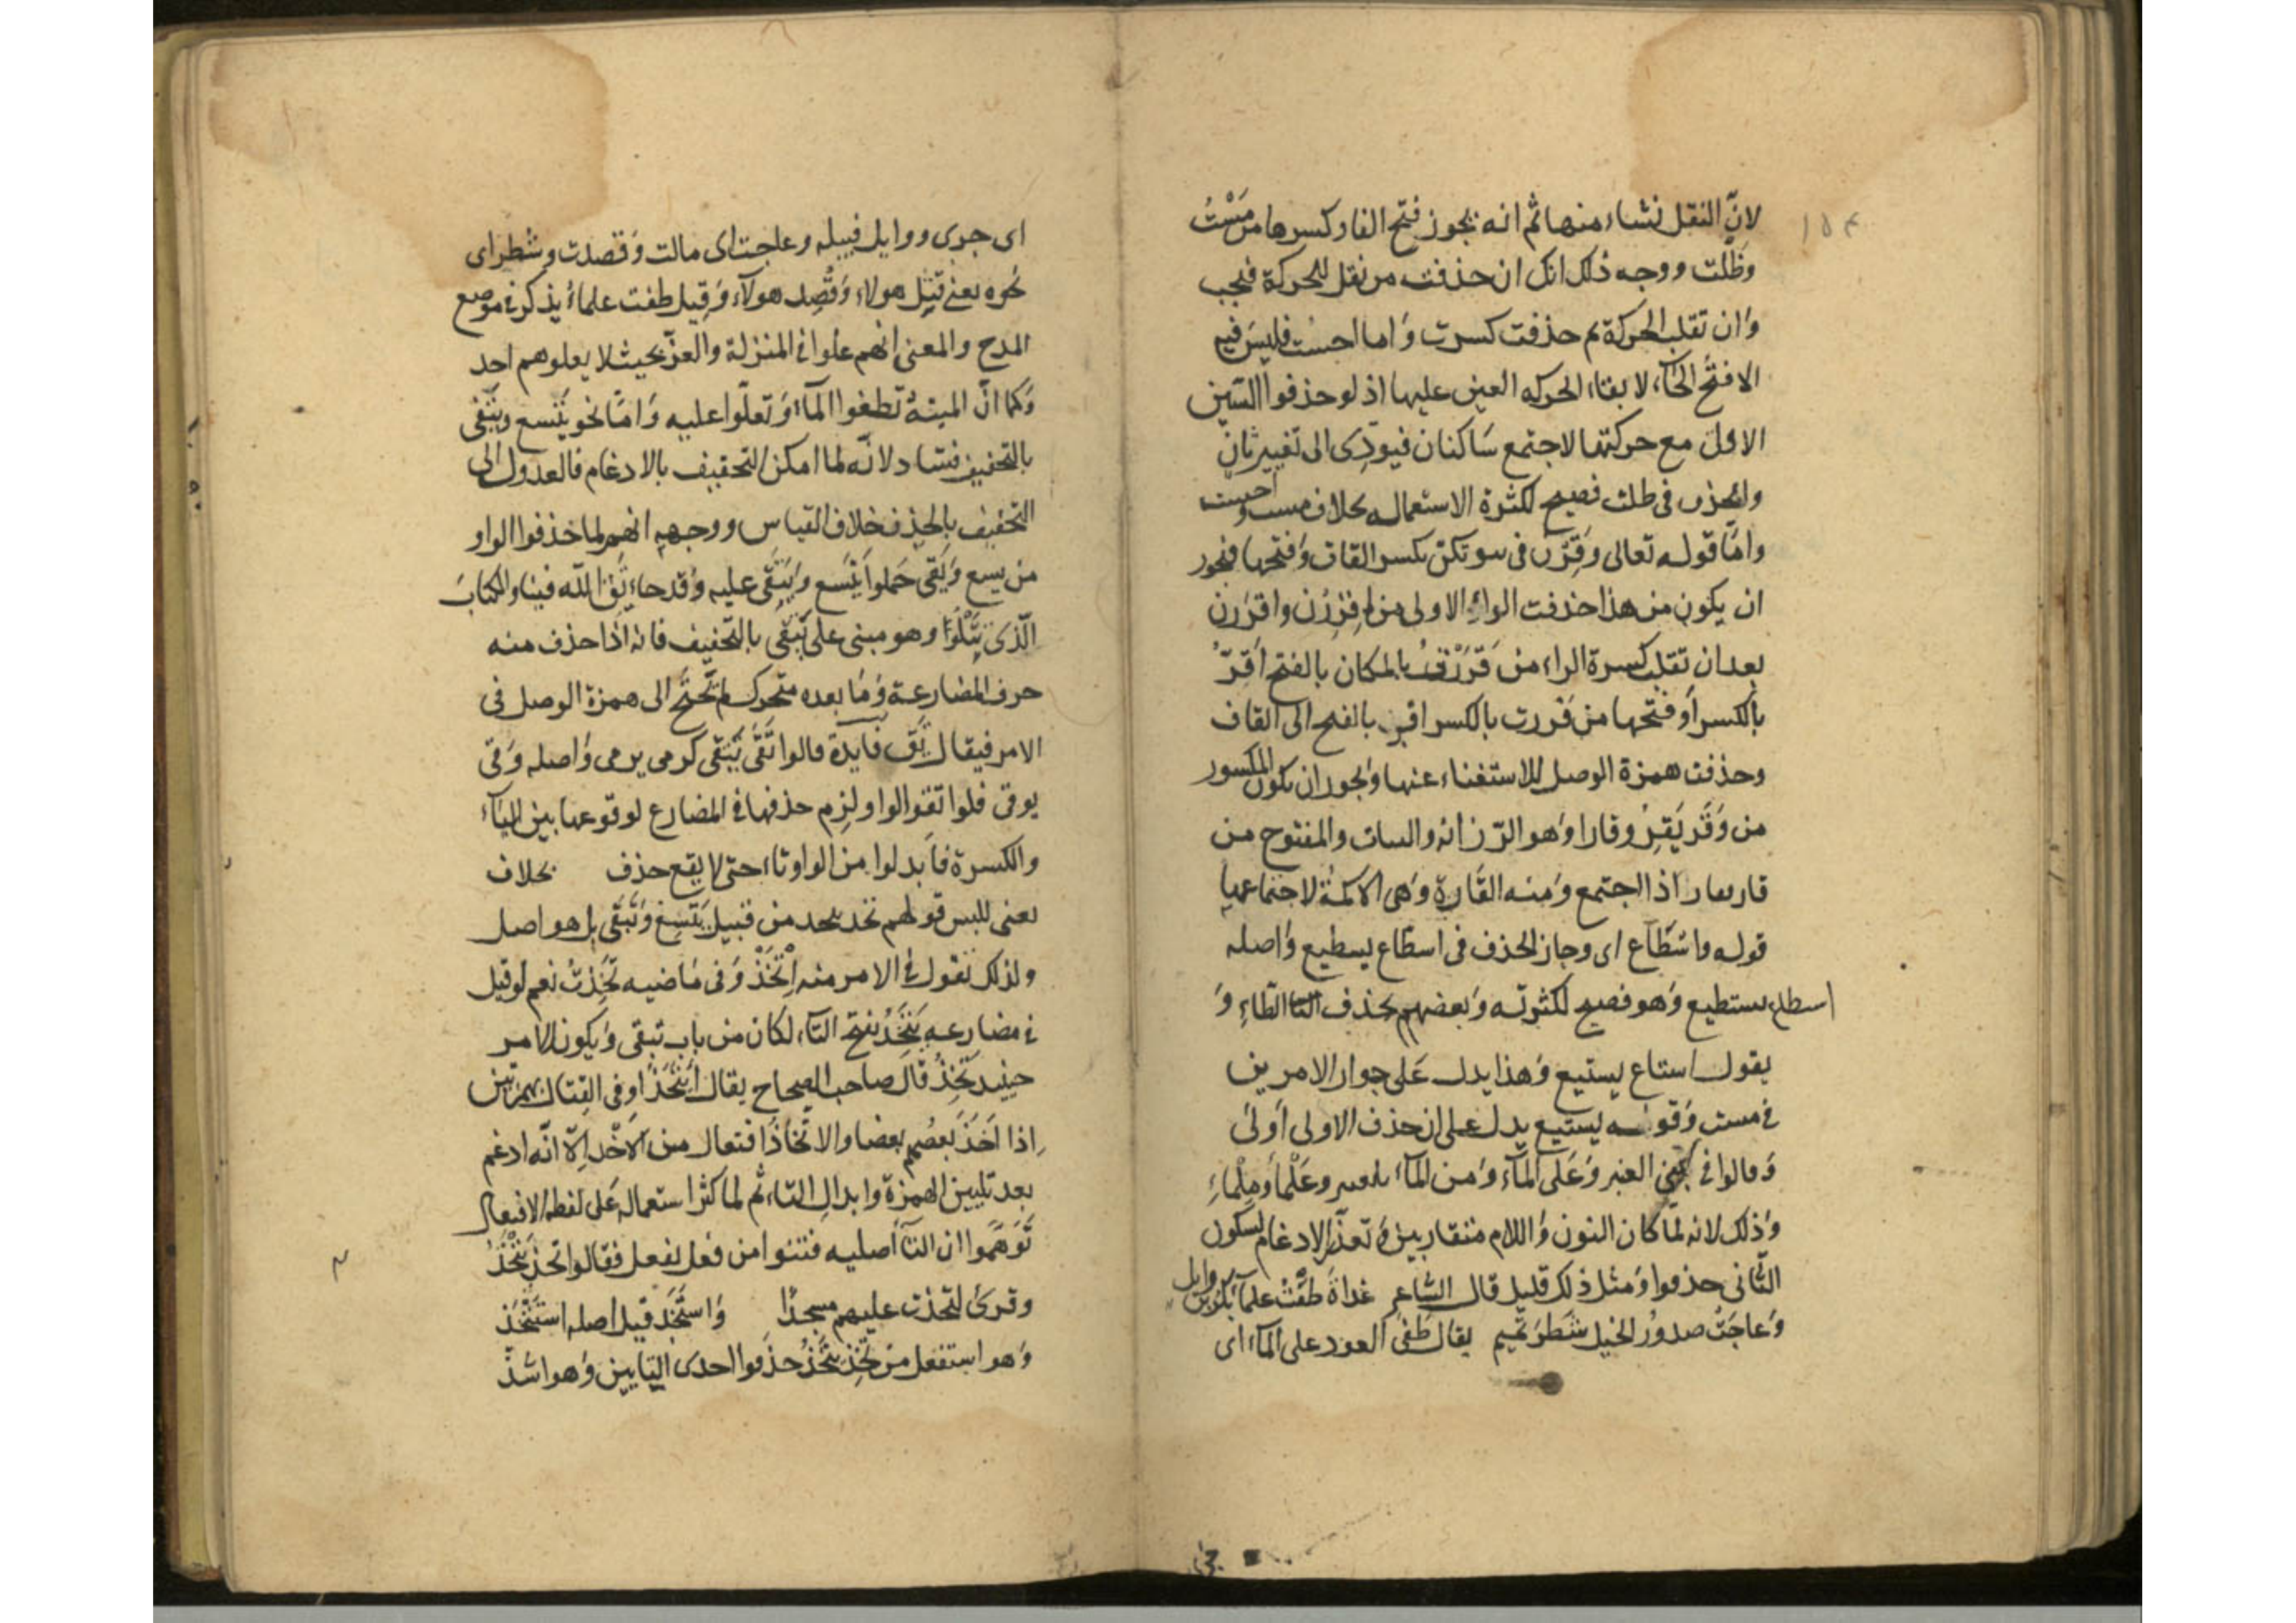 ١٥٤
لانّ النقل نشاء منها ثم انه يجوز فتح الفا وكسرها من مَسْتُ
وظَلْت ووجه ذلك انك ان حذفت من نقل للحركة فيجب
وَان تقلب الحركة ثم حذفت كسرت وَاما احسْت فليسَ فيه
الا فتحُ الحَاء لا بقاء الحركه العين عليها اذ لو حذفوا السّين
الاولى مع حركتها لاجتمع سَاكنان فيودّى الى تغيير ثانٍ
والحذف فى ظلت فصيح لكثرة الاستعماله بخلاف مست واحست
وامّا قوله تعالى وَقِرْن فى بيوتكن بكسر القاف وَفتحها فيجوز
ان يكون من هذا حذفت الراء الاولى من اِقْرِرْن واقرَرن
بعد ان تقلب كسرة الراء من قَرَرْتُ بالمكان بالفتح اَقِرّ
بالكسر أو فتحها من قررت بالكسر اقر بالفتح الى القاف
وحذفت همزة الوصل للاستغناء عنها وَيجوز ان يكون المكسور
من وَقَر يَقِرُ وقارا وَهو الرّزانة والثبات والمفتوح من
قار يقار اذا اجتمع وَمنه القَارة وَهى الاكمة لاجتماعها
قوله واسْطَاع اى وجاز الحذف فى اسطَاع يسطيع وَاصله
اسطاع يستطيع وَهو فصيح لكثرته وَبعضهم بحذف الطّاءِ وَ
يقول استاع يستيع وَهذا يدل عَلى جواز الامرين
فى مست وَقوله يستيع يدل على ان حذف الاولى اَولى
وَقالوا فى بنى العنبر وَعَلى المآء وَمن المآء بلعنبر وعَلْمآءِ وَمِلْمآءِ
وَذلك لانه لمّا كان النون وَاللام متقاربين وَتعذّر الادغام لسكون
الثّانى حذفوا وَمثل ذلك قليل قال الشاعر غداةَ طفَتْ علمآءِ بكر بن وايل
وَعَاجَتْ صدورُ الخيل شَطرَ تَميم يقال طفى العود على المآء اى
اى جرى ووايل قبيله وعاجت اى مالت وَقصدت وشطر اى
نحوه يعنى قتِل هولاء وَقُصِد هولآء وَقيل طفت علمآءِ يذكر فى موضع
المدح والمعنى انهم علوا فى المنزلة والعزّ بحيث لا يعلوهم احد
وَكما انّ الميتةُ تطفوا المآء وَتعلوا عليه وَامّا نحو يَتسع ويتَقى
بالتخفيف فشاد لانّه لما امكن التخفيف بالادغام فالعدول الى
التخفيف بالحذف خلاف القياس ووجهه انهم لما حذفوا الواو
من يسع وَيَقى حَملوا يَتَسع وَيَتَقى عليه وَقد جاء تَقِ اللّه فينا والكتابَ
الّذى تَتْلُوا وهو مبنى على يَتَقى بالتخفيف فانه اذا حذف منه
حرف المضارعة وَمَا بعده متحرك لم تحتَج الى همزة الوصل فى
الامر فيقال تَقِ فايدة قالوا تَقَى يَتْقى كرمى يرمى وَاصله وَقى
يوقى فلو اتقوا الواو لزم حذفها فى المضارع لوقوعها بين اليآء
والكسرة فاَبدلوا من الواو تاء حتى لا يقع حذف بخلاف
يعنى ليس قولهم تخذ يتخد من قبيل يَتَسِع وَيَتَقى بل هو اصل
ولذلك تقول فى الامر منه اِتْخَذْ وَفى مَاضيه تَخِذتُ نعم لو قيل
فى مضارعه يَتَخِذُ بفتح التآء لكان من باب تيقى وَيكون الامر
حينيد تَخِذْ قال صاحب الصحاح يقال ايتَخَذُوا فى القِتال بهمزتين
اِذا اَخَذَ بعضُهم بعضا والاتّخاذُ افتعال من الاَخْذ اِلاّ انّه ادغم
بعد تليين الهمزة وابدالِ التاء ثم لما كثر استعماله عَلى لفظ الافتعال
تَوَهّموا ان التآء اصليه فبنوا من فعل يفعل فقالوا تخِذ يَتْخَذُ
وقرئ لتخذت عليهم مسجدًا وَاستَخَذ قيل اصله استَتْخَذ
وَهو استفعل من تخِذ يَتْخَذُ حذفوا احدى التايين وَهو اشذّ